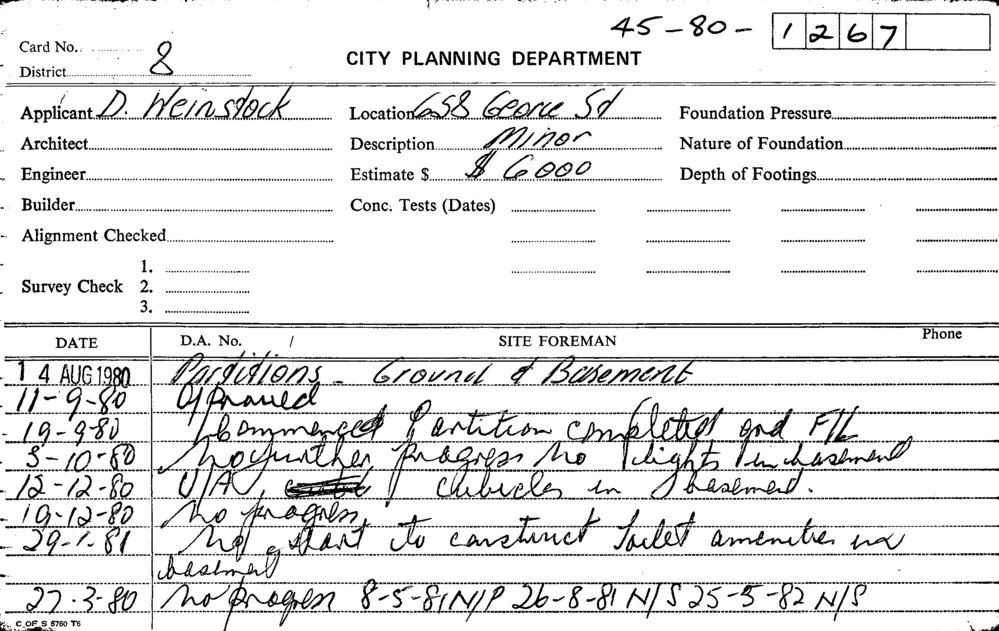 45-80- 1267
Card No.
CITY PLANNING DEPARTMENT
District 8
Applicant D. Weinstock Location 658 George St Foundation Pressure
Architect Description Minor Nature of Foundation
Engineer Estimate $ $ 6000 Depth of Footings
Builder Conc. Tests (Dates)
Alignment Checked
1.
Survey Check 2.
3.
DATE D.A. No. / SITE FOREMAN Phone
14 AUG 1980 Partitions - Ground & Basement
11-9-80 Approved
19-9-80 Commenced Partition completed and F/L
3-10-80 No further progress No lights in basement
12-12-80 U/A, cubicles in basement.
19-12-80 No progress
29-1-81 No start to construct Toilet amenities in
basement
27.3-80 No progress 8-5-81 N/P 26-8-81 N/S 25-5-82 N/S
C OF S 6760 T6